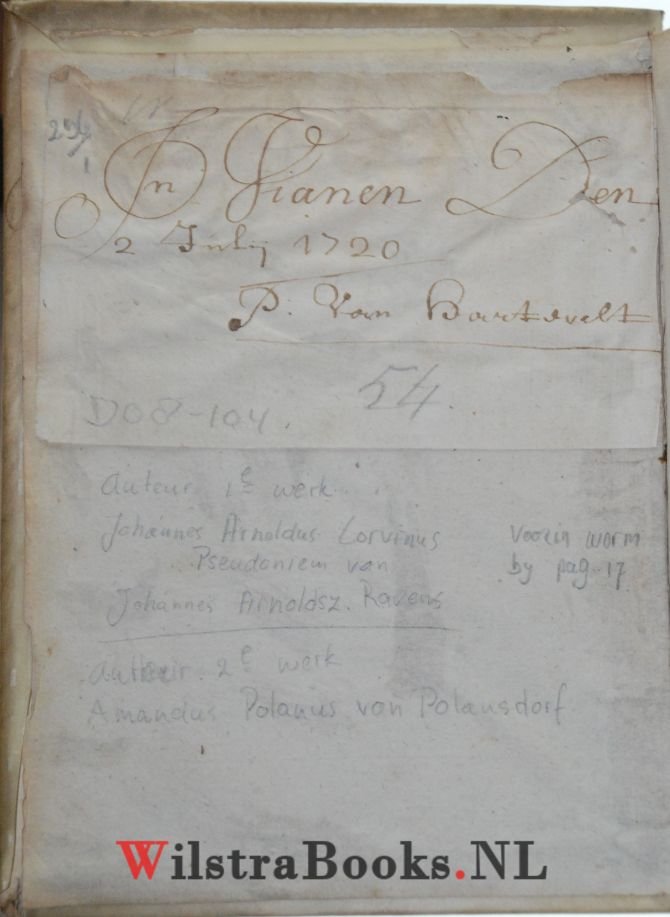 294
In Vianen Den
2 July 1720
P. Van Bartevelt
54.
D08-104.
auteur 1e werk
Johannes Arnoldus Corvinus
Pseudoniem van
Johannes Arnoldsz. Ravens
Voorin worm
by pag. 17
auteur 2e werk
Amandus Polanus von Polansdorf
WilstraBooks.NL